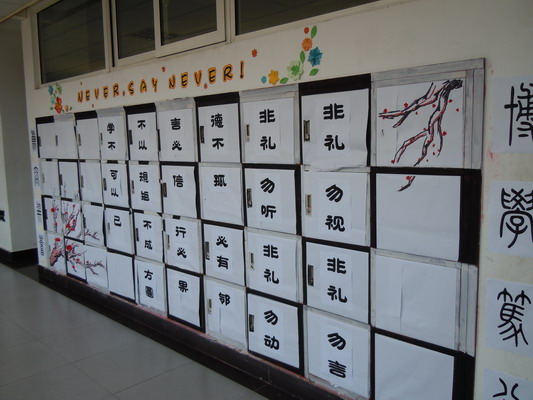 NEVER SAY NEVER!
博學篤
非礼勿视非礼勿言
非礼勿听非礼勿动
德不孤必有邻
言必信行必果
不以规矩不成方圆
学不可以已